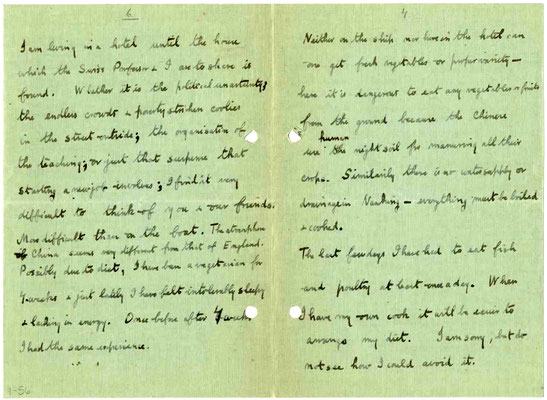 6
I am living in a hotel until the house
which the Swiss Professor & I are to share is
found. Whether it is the political uncertainty;
the endless crowds & poverty stricken coolies
in the street outside; the organisation of
the teaching; or just that suspense that
starting a new job involves; I find it very
difficult to think of you & our friends.
More difficult than on the boat. The atmosphere
of China seems very different from that of England.
Possibly due to diet, I have been a vegetarian for
7 weeks & just lately I have felt intolerably sleepy
& lacking in energy. Once before after 7 weeks
I had the same experience.
7-56
4
Neither on the ship nor here in the hotel can
one get fresh vegetables or proper variety –
here it is dangerous to eat any vegetables or fruits
from the ground because the Chinese
use the human night soil for manuring all their
crops. Similarily there is no water supply or
drainage in Nanking – everything must be boiled
& cooked.
The last few days I have had to eat fish
and poultry at least once a day. When
I have my own cook it will be easier to
arrange my diet. I am sorry, but do
not see how I could avoid it.